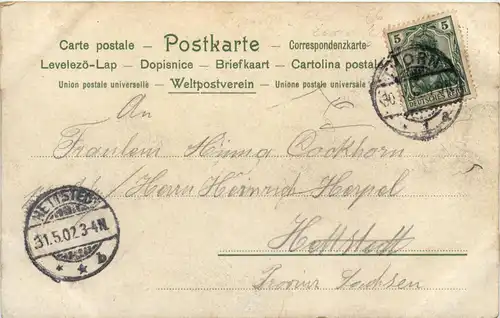 Carte postale — Postkarte — Correspondenzkarte
Levelező-Lap — Dopisnice — Briefkaart — Cartolina postale
Union postale universelle — Weltpostverein — Unione postale universale
5 5
DEUTSCHES REICH
THORN
* 1 a
An
Fräulein Minna
Herrn Heinrich Herpel
Hettstedt
Provinz Sachsen
HETTSTEDT
31.5.02.3-4N.
* * b